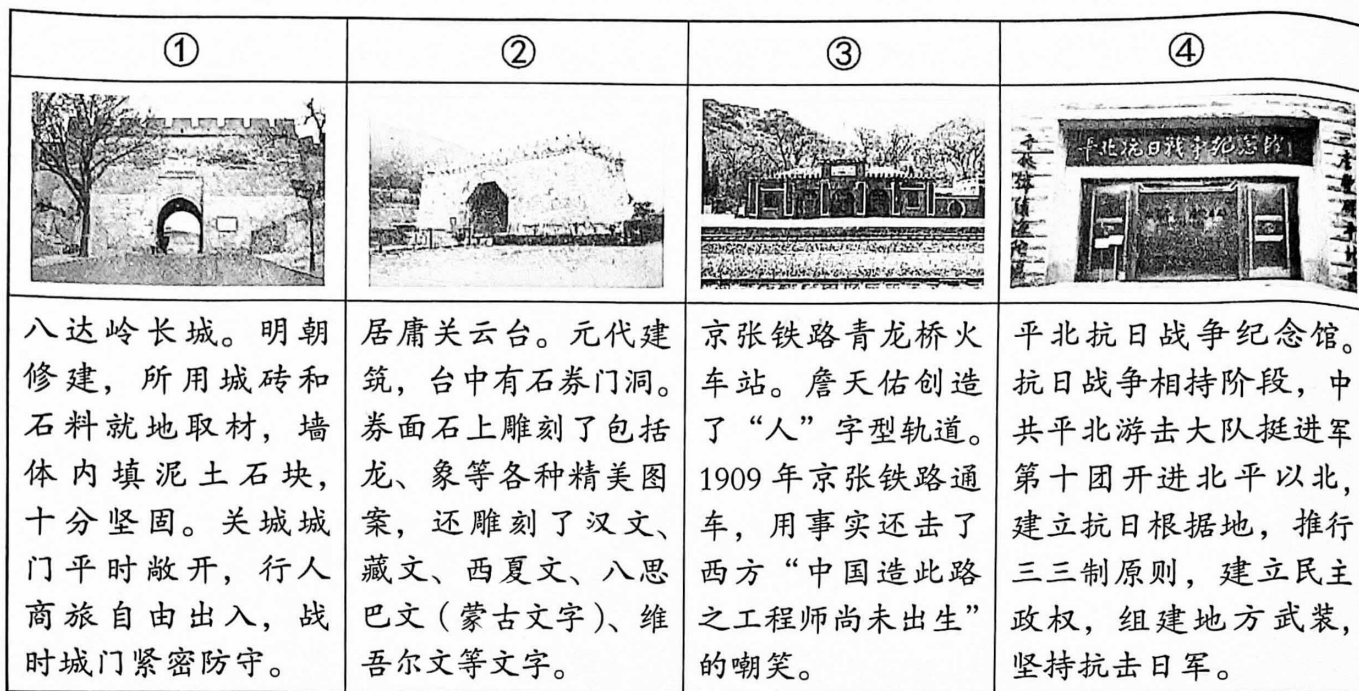 ①
②
③
④
平北抗日战争纪念馆
八达岭长城。明朝
修建，所用城砖和
石料就地取材，墙
体内填泥土石块，
十分坚固。关城城
门平时敞开，行人
商旅自由出入，战
时城门紧密防守。
居庸关云台。元代建
筑，台中有石券门洞。
券面石上雕刻了包括
龙、象等各种精美图
案，还雕刻了汉文、
藏文、西夏文、八思
巴文（蒙古文字）、维
吾尔文等文字。
京张铁路青龙桥火
车站。詹天佑创造
了“人”字型轨道。
1909 年京张铁路通
车，用事实还击了
西方“中国造此路
之工程师尚未出生”
的嘲笑。
平北抗日战争纪念馆。
抗日战争相持阶段，中
共平北游击大队挺进军
第十团开进北平以北，
建立抗日根据地，推行
三三制原则，建立民主
政权，组建地方武装，
坚持抗击日军。